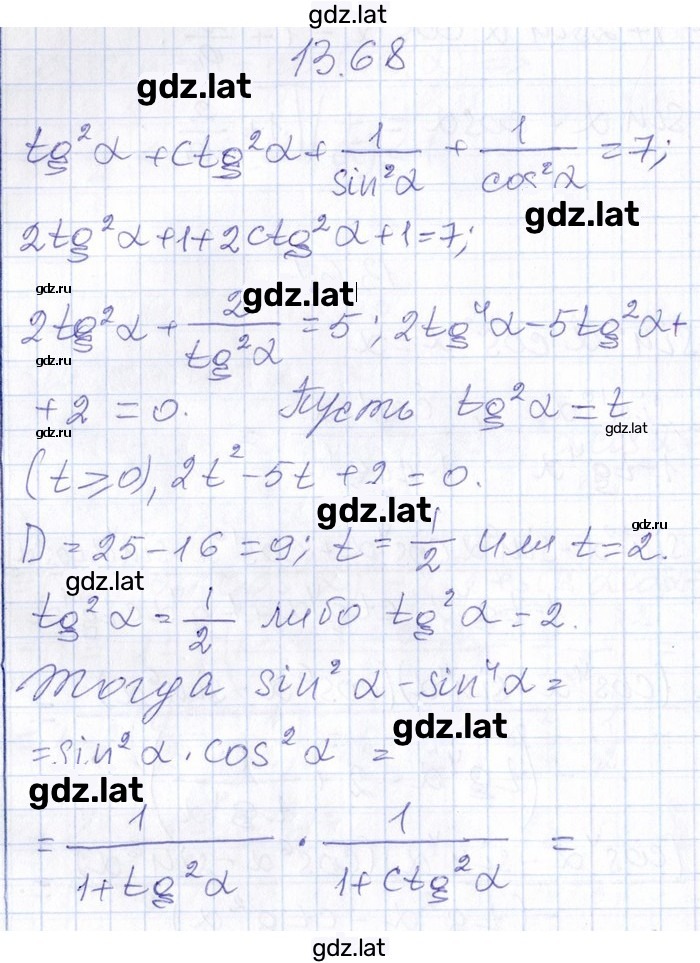 gdz.lat
13.68
gdz.lat
tg²α + ctg²α + 1/sin²α + 1/cos²α = 7;
gdz.lat
2tg²α + 1 + 2ctg²α + 1 = 7;
gdz.ru
gdz.lat
2tg²α + 2/tg²α = 5; 2tg⁴α - 5tg²α +
gdz.ru
+ 2 = 0. Пусть tg²α = t
gdz.ru
gdz.lat
(t ⩾ 0), 2t² - 5t + 2 = 0.
gdz.lat
gdz.ru
D = 25 - 16 = 9; t = 1/2 или t = 2.
gdz.lat
tg²α = 1/2 либо tg²α = 2.
Тогда sin²α - sin⁴α =
gdz.lat
= sin²α · cos²α =
gdz.lat
= 1/(1 + tg²α) · 1/(1 + ctg²α) =
gdz.lat